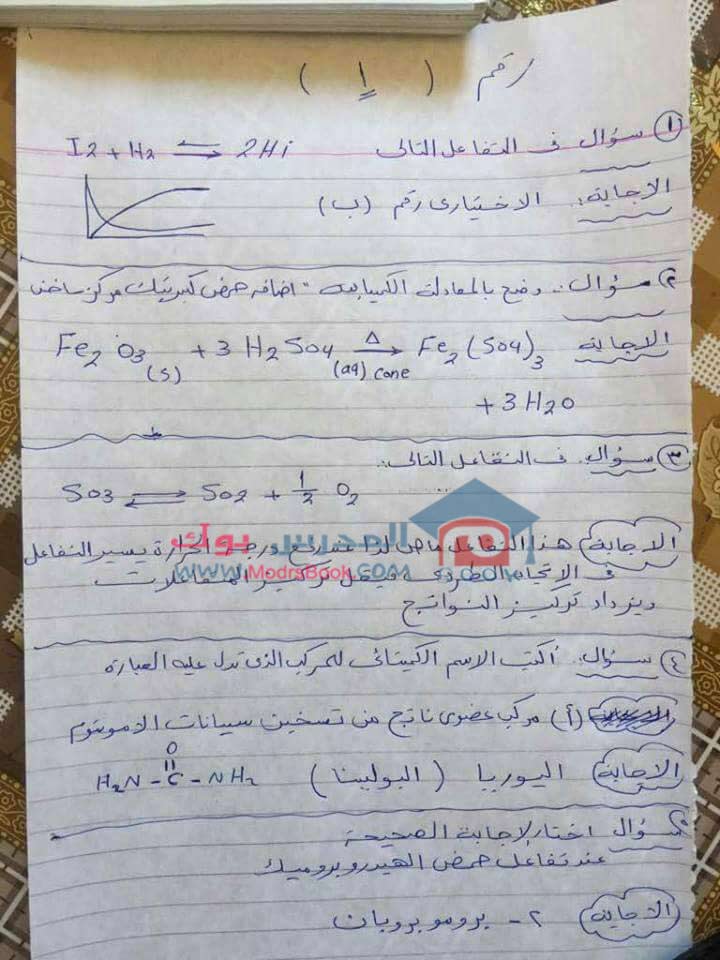 رقم ( ١ )
① سؤال فى التفاعل التالى I2 + H2 ⇌ 2Hi
الاجابة: الاختيارى رقم (ب)
٢ سؤال.. وضح بالمعادلة الكيميائية "اضافه حمض كبريتيك مركز ساخن
الاجابة Fe2O3 (s) + 3 H2SO4 (aq) conc Δ→ Fe2(SO4)3
+ 3 H2O
③ سؤال. فى التفاعل التالى..
SO3 ⇌ SO2 + 1/2 O2
الاجابة هذا التفاعل ماص لذا عند رفع درجة الحرارة يسير التفاعل
فى الإتجاه الطردى تركيز المتفاعلات
ويزداد تركيز النواتج
المدرس بوك
WWW.ModrsBook.COM
٤ سؤال. أكتب الاسم الكيميائى للمركب الذى تدل عليه العبارة
(أ) مركب عضوى ناتج من تسخين سيانات الامونيوم
الاجابة اليوريا (البولينا) H2N - C - NH2
O
سؤال اختار الإجابة الصحيحة
عند تفاعل حمض الهيدروبروميك
الاجابة ٢- برومو بروبان